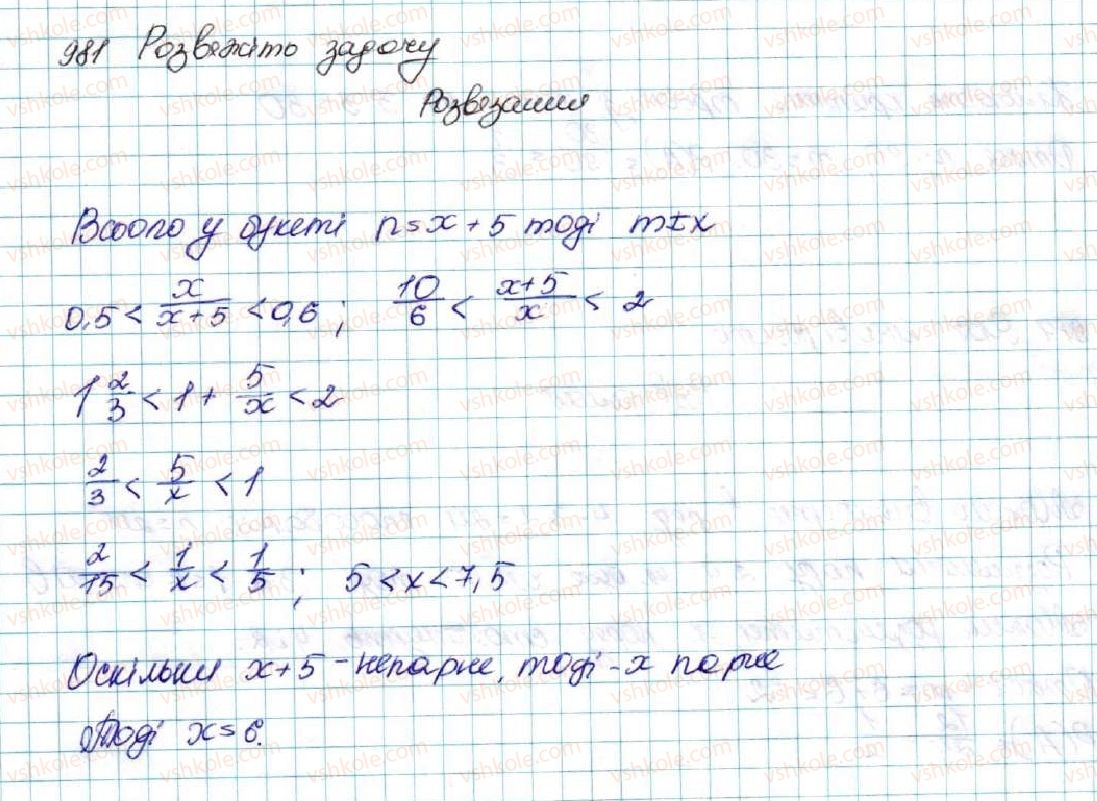 981 Розвяжіть задачу
Розвязання
Всього у букеті n=x+5 тоді m=x
0,5 < x/(x+5) < 0,6; 10/6 < (x+5)/x < 2
1 2/3 < 1 + 5/x < 2
2/3 < 5/x < 1
2/15 < 1/x < 1/5; 5 < x < 7,5
Оскільки x+5 - непарне, тоді - x парне
Тоді x = 6.